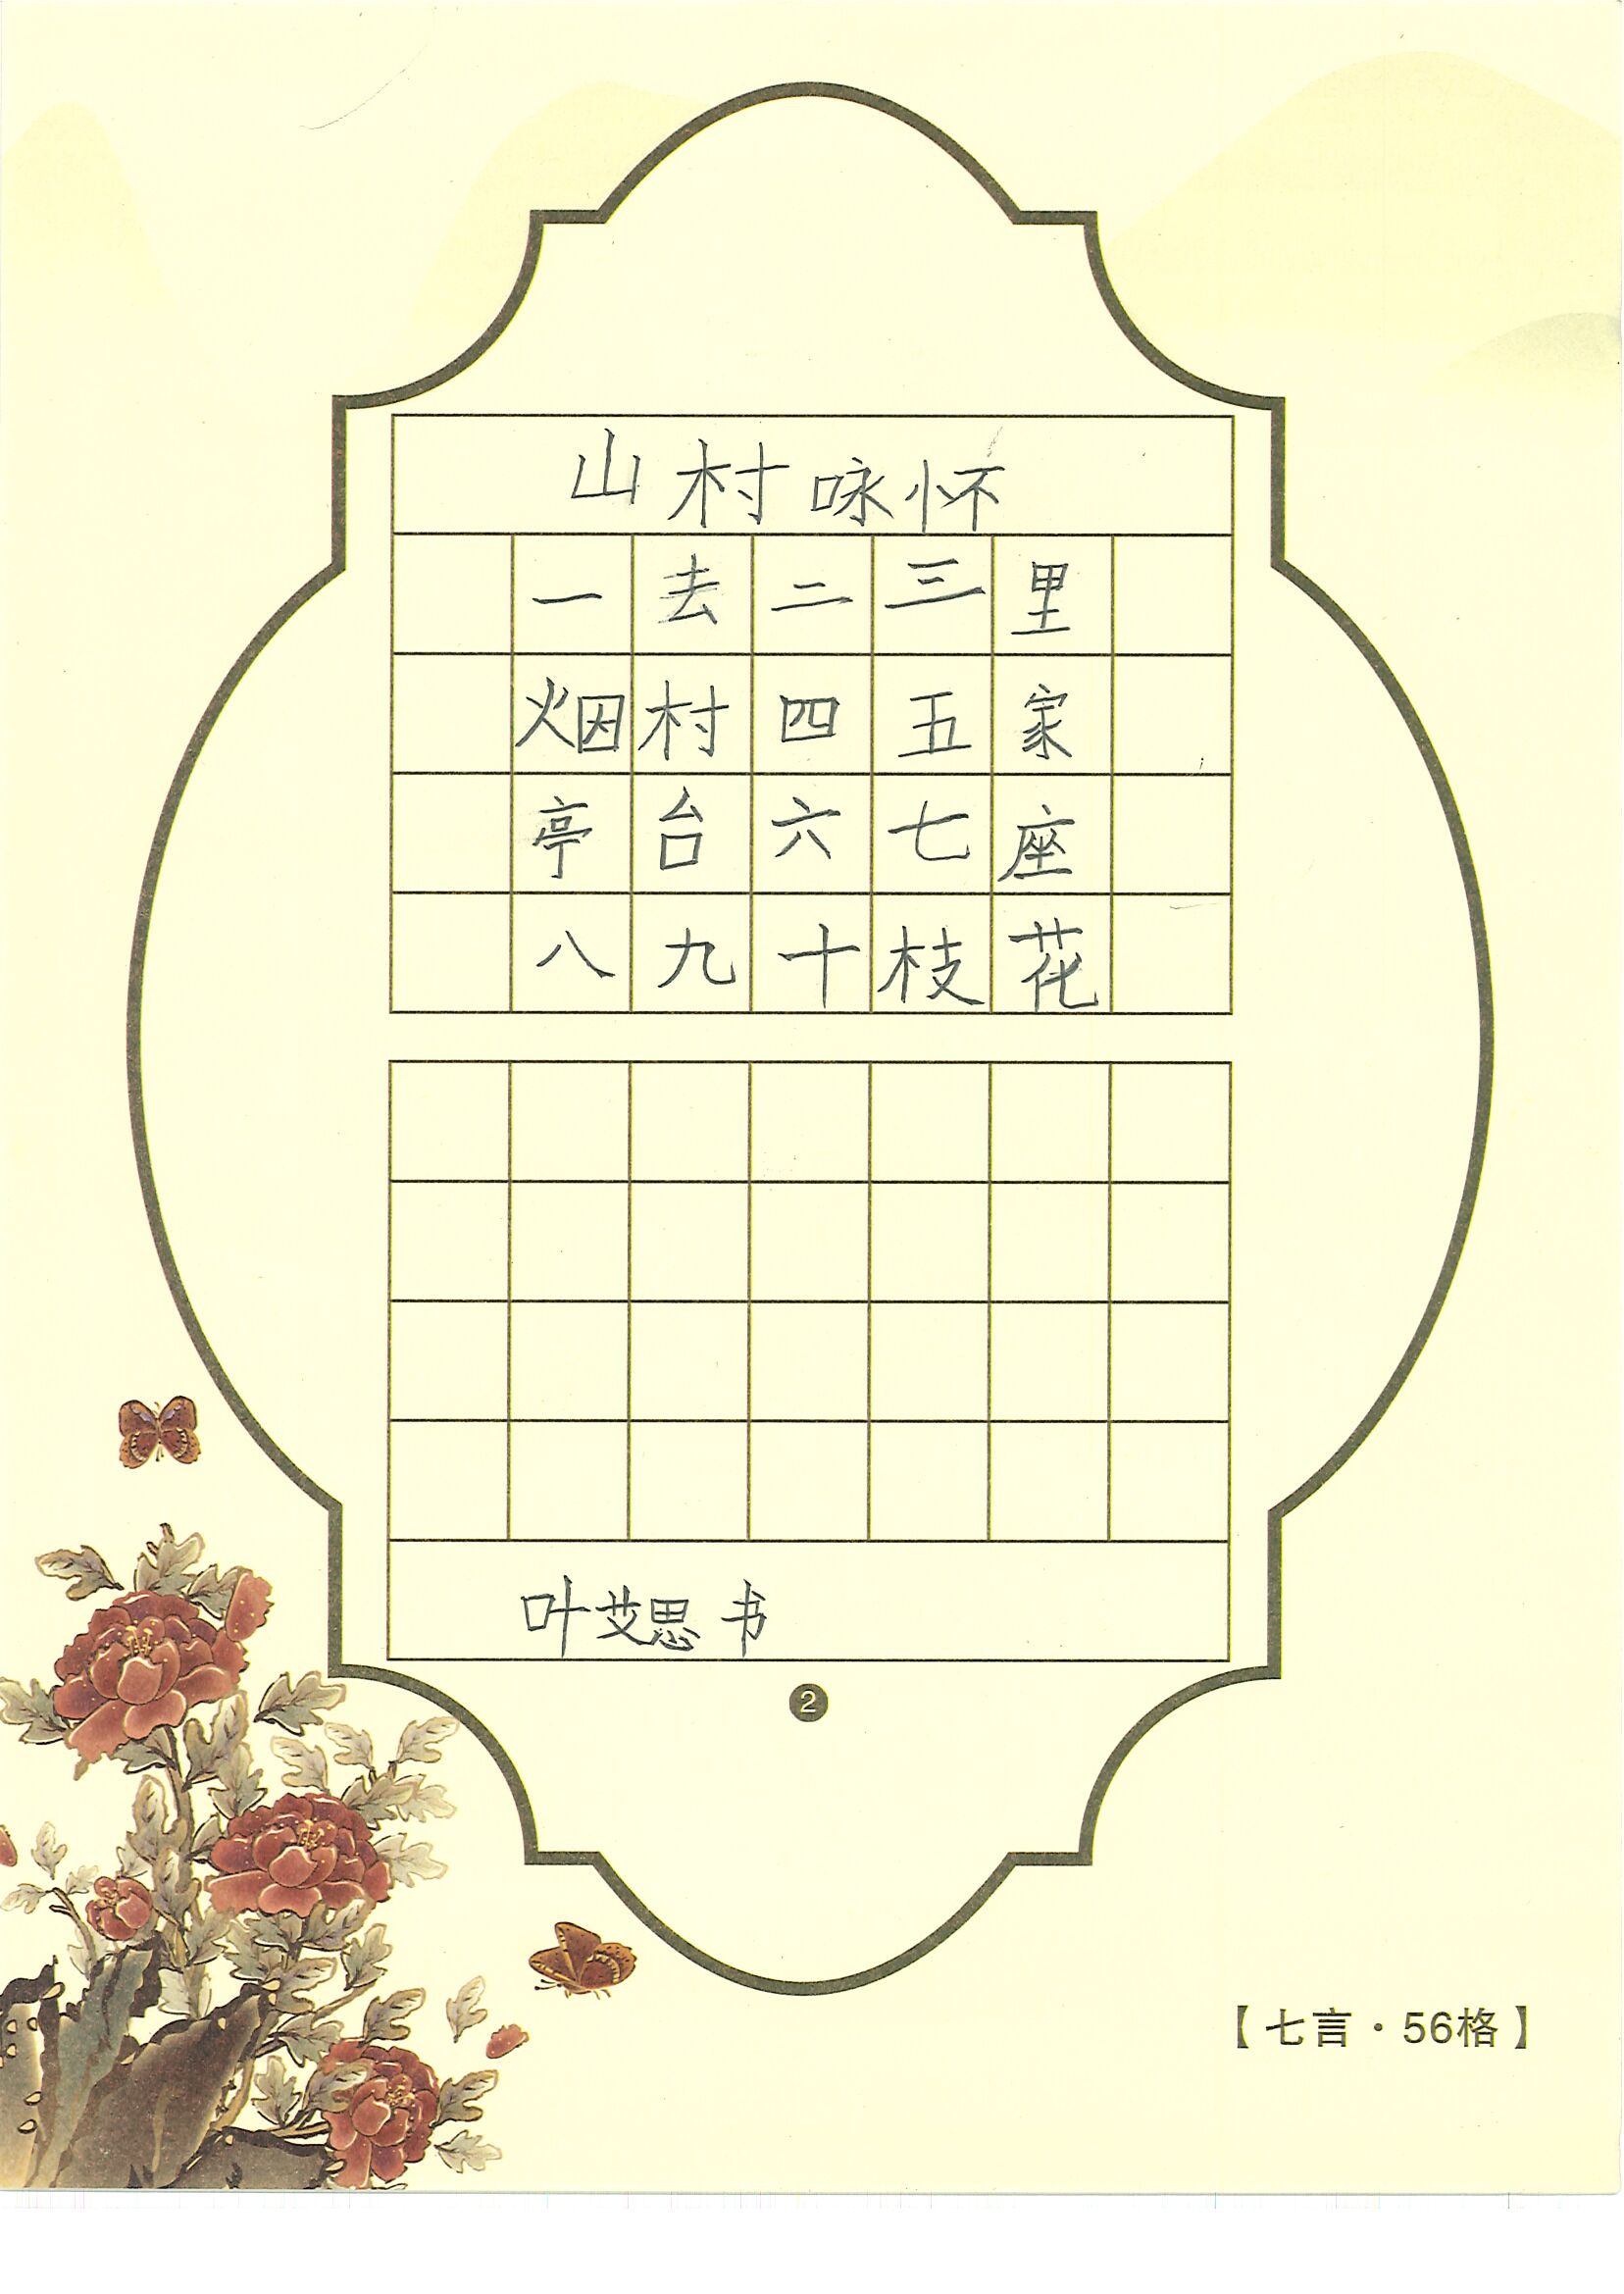 山村咏怀
一去二三里
烟村四五家
亭台六七座
八九十枝花
叶艾思书
2
【七言·56格】